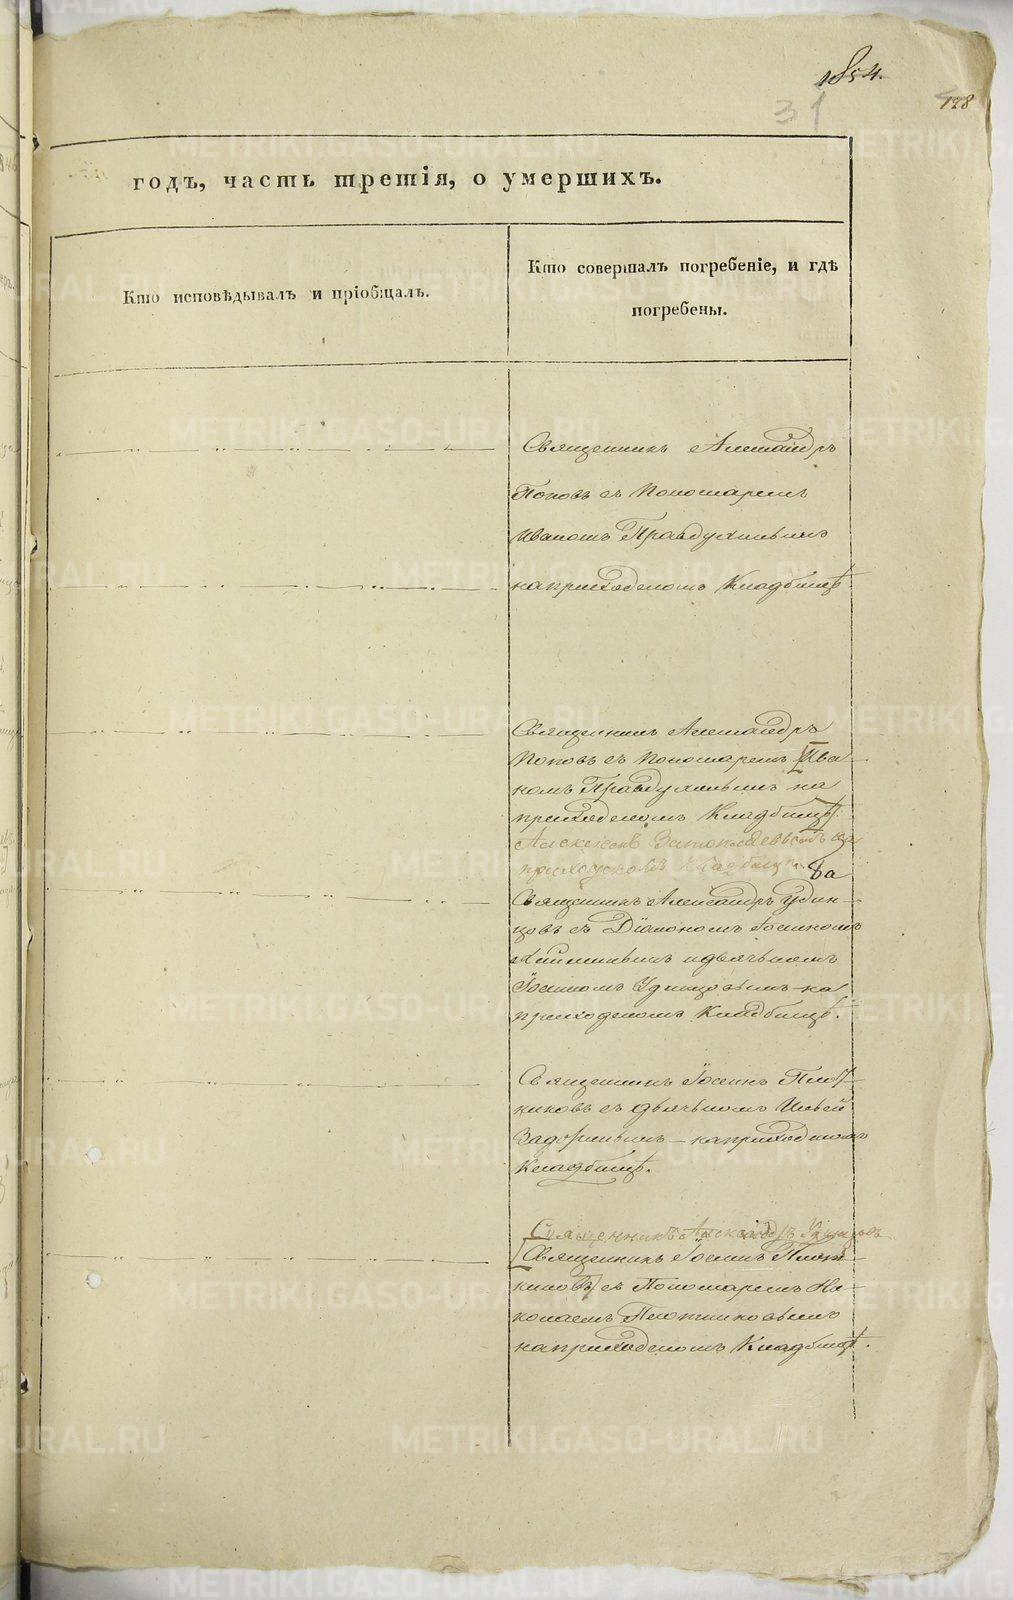 1854.
128
31
годъ, часть третія, о умершихъ.
Кто исповѣдывалъ и пріобщалъ.
Кто совершалъ погребеніе, и гдѣ
погребены.
Священникъ Александръ
Поповъ съ Пономаремъ
Иваномъ Правдухинымъ
на приходскомъ Кладбищѣ
Священникъ Александръ
Поповъ съ Пономаремъ Ива-
номъ Правдухинымъ на
приходскомъ Кладбищѣ
приходскомъ кладбищѣ
Священникъ Александръ Удин-
цовъ съ Діакономъ
и дьячькомъ
Удинцовымъ на
приходскомъ Кладбищѣ.
Священникъ Іосифъ Плот-
никовъ съ дьячькомъ Ильей
на приходскомъ
Кладбищѣ.
Священникъ Александръ Удинцовъ
Священникъ Іосифъ Плот-
никовъ съ Пономаремъ Ни-
колаемъ Плотниковымъ
на приходскомъ Кладбищѣ.
METRIKI.GASO-URAL.RU